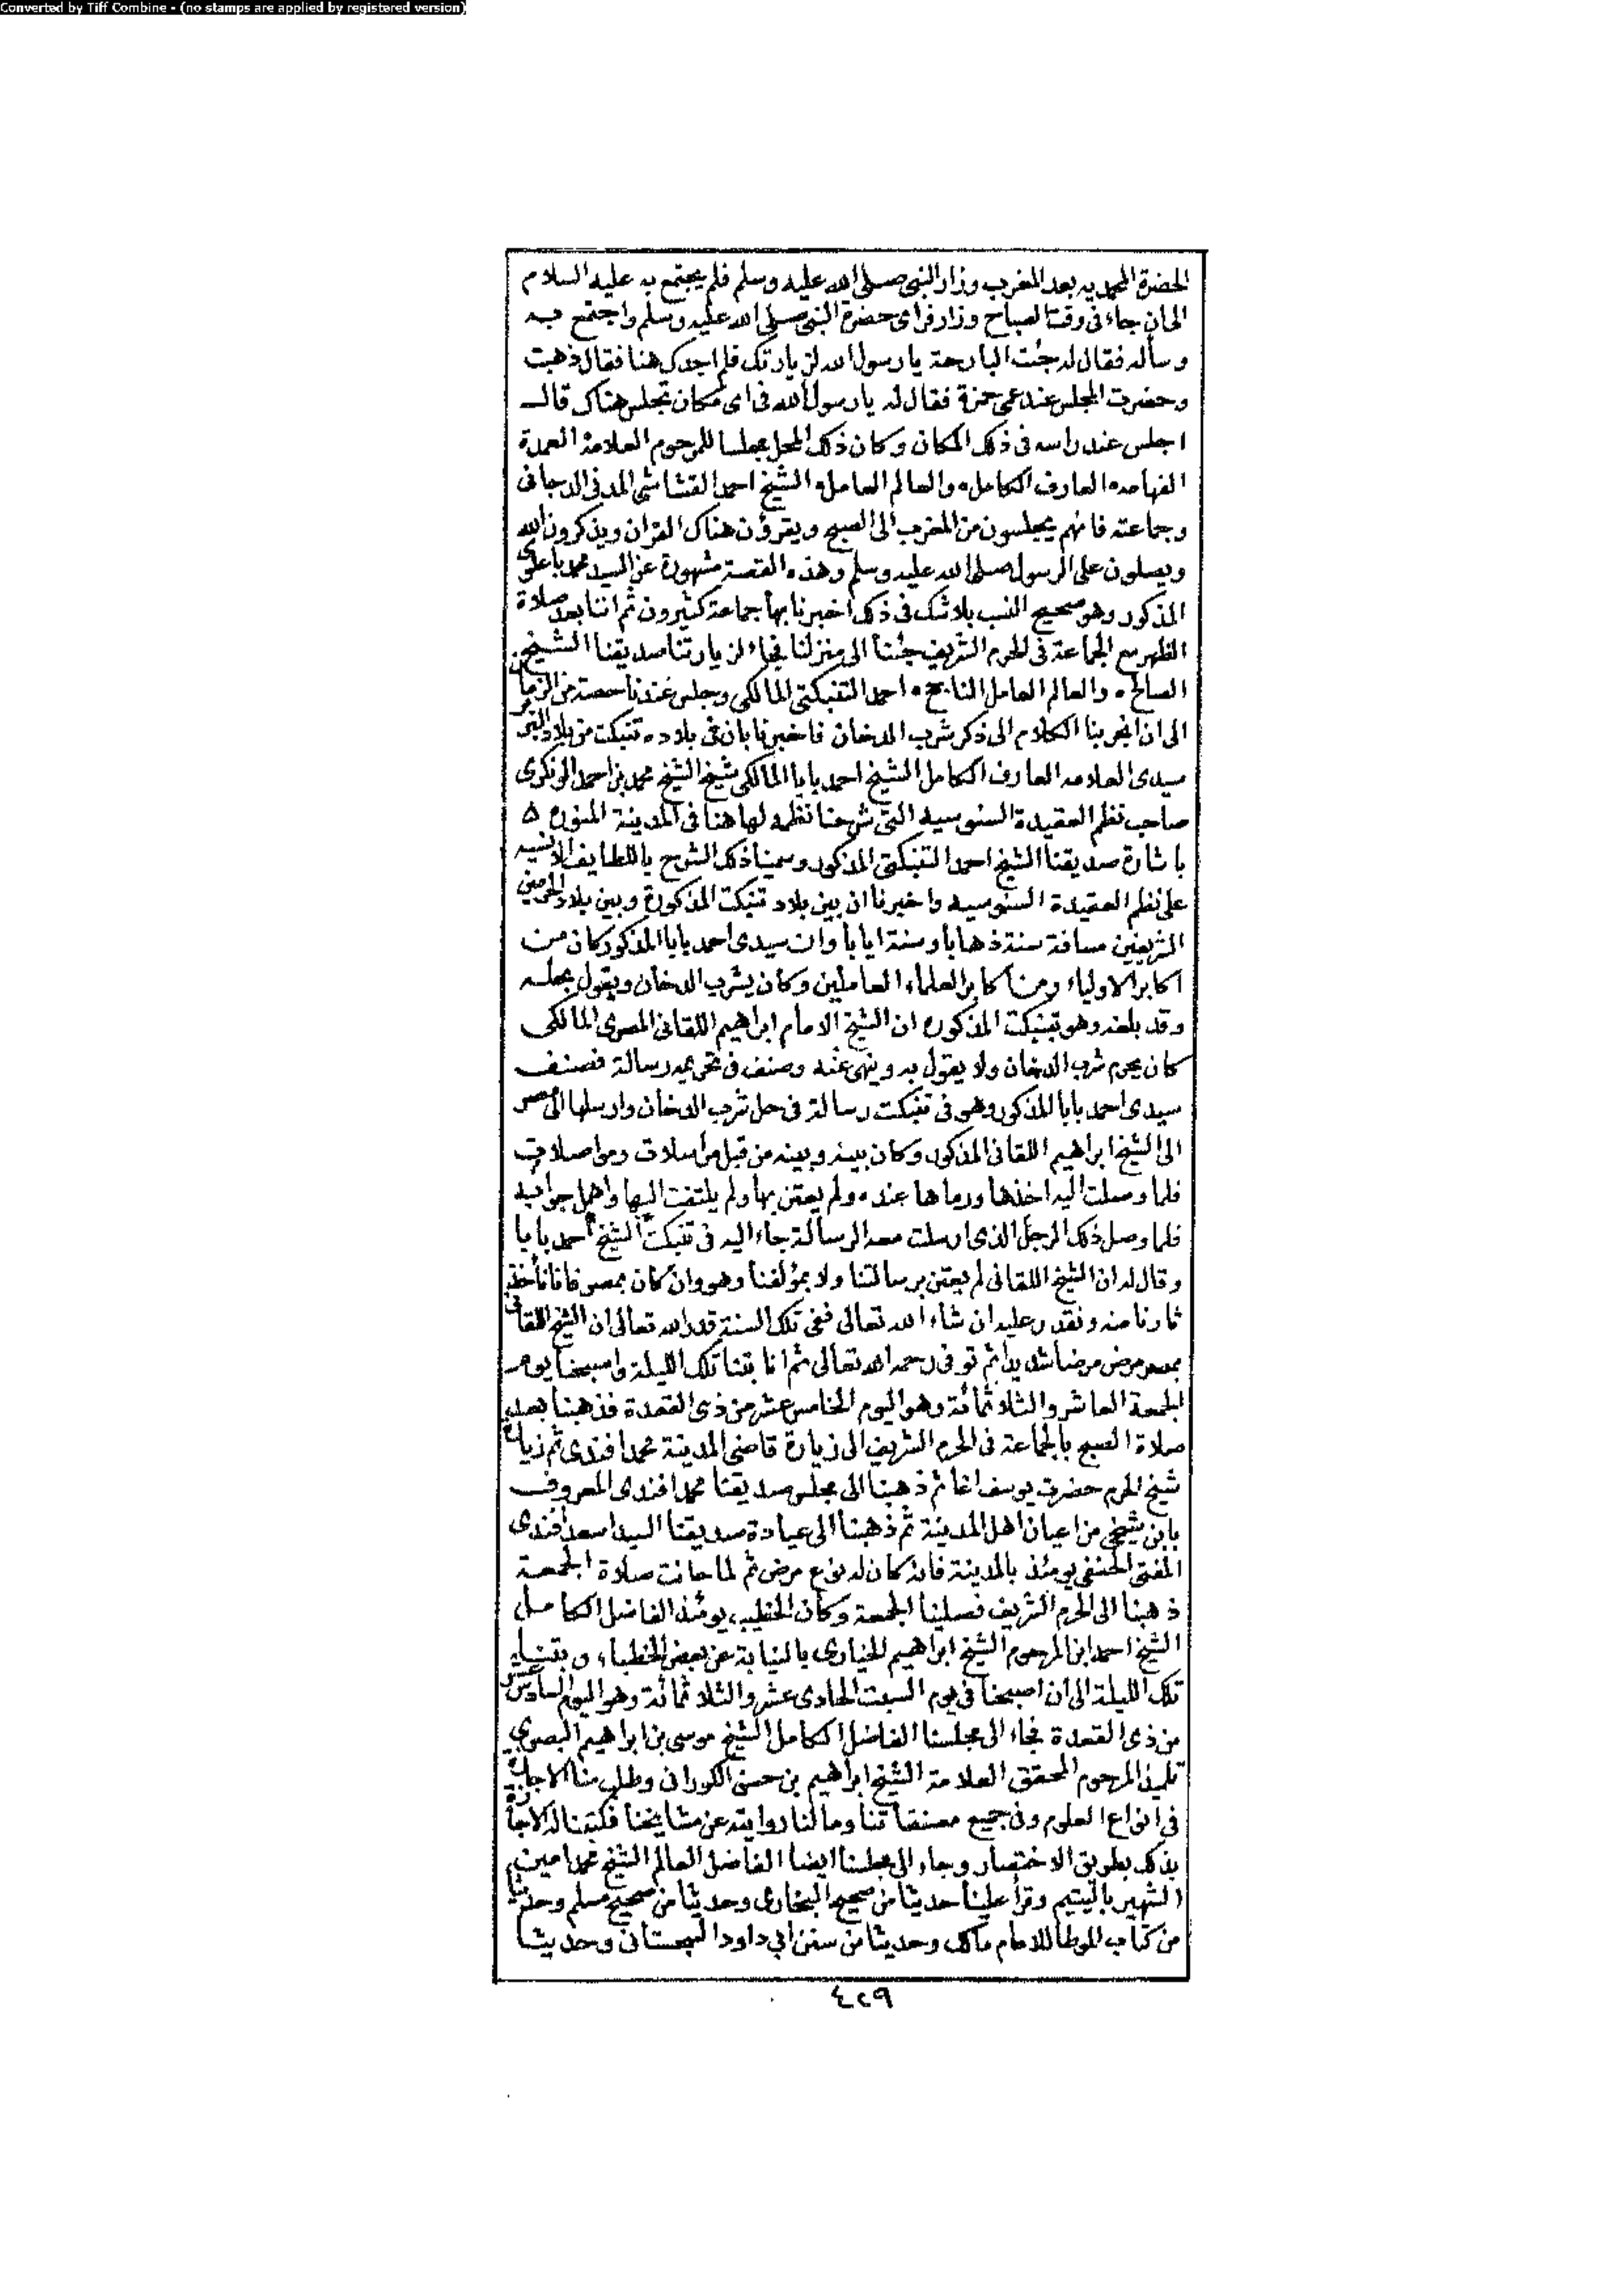 Converted by Tiff Combine - (no stamps are applied by registered version)
الحضرة المحمديه بعد المغرب وزار النبى صلى الله عليه وسلم فلم يجتمع به عليه السلام
الى ان جاء فى وقت الصباح وزار فراى حضرة النبى صلى الله عليه وسلم واجتمع به
وسأله فقال له جئت البارحة يا رسول الله لزيارتك فلم اجدك هنا فقال ذهبت
وحضرت المجلس عند عمى حمزة فقال له يا رسول الله فى اى مكان تجلس هناك قال
اجلس عند راسه فى ذلك المكان وكان ذلك المحل مجلسا للمرحوم العلامة العمدة
الفهامه العارف الكامل والعالم العامل الشيخ احمد القشاشى المدنى الدجانى
وجماعته فانهم يجلسون من المغرب الى الصبح ويقرؤن هناك القران ويذكرون الله
ويصلون على الرسول صلى الله عليه وسلم وهذه القصة مشهورة عن السيد محمد باعلوى
المذكور وهو صحيح النسب بلا شك فى ذلك اخبرنا بها جماعة كثيرون ثم اننا بعد صلاة
الظهر مع الجماعة فى الحرم الشريف جئنا الى منزلنا فجاء لزيارتنا صديقنا الشيخ
الصالح والعالم العامل الناجح احمد التنبكتى المالكى وجلس عندنا حصة من الزمان
الى ان انجر بنا الكلام الى ذكر شرب الدخان فاخبرنا بان فى بلاده تنبكت من بلاد التبر
سيدى العلامه العارف الكامل الشيخ احمد بابا المالكى شيخ الشيخ محمد بن احمد الونكرى
صاحب نظم العقيدة السنوسيه التى شرحنا نظمه لها هنا فى المدينة المنوره
باشارة صديقنا الشيخ احمد التنبكتى المذكور وسمينا ذلك الشرح باللطايف الانسيه
على نظم العقيدة السنوسيه واخبرنا ان بين بلاد تنبكت المذكورة وبين بلاد الحرمين
الشريفين مسافة سنة ذهابا وسنة ايابا وان سيدى احمد بابا المذكور كان من
اكابر الاولياء ومن اكابر العلماء العاملين وكان يشرب الدخان ويقول بحله
وقد بلغه وهو بتنبكت المذكوره ان الشيخ الامام ابراهيم اللقانى المصرى المالكى
كان يحرم شرب الدخان ولا يقول به وينهى عنه وصنف فى تحريمه رسالة فصنف
سيدى احمد بابا المذكور وهو فى تنبكت رسالة فى حل شرب الدخان وارسلها الى مصر
الى الشيخ ابراهيم اللقانى المذكور وكان بينه وبينه من قبل مراسلات ومواصلات
فلما وصلت اليه اخذها ورماها عنده ولم يعتن بها ولم يلتفت اليها واهمل جوابه
فلما وصل ذلك الرجل الذى ارسلت معه الرسالة جاء اليه فى تنبكت الشيخ احمد بابا
وقال له ان الشيخ اللقانى لم يعتن برسالتنا ولا بمؤلفنا وهو وان كان بمصر فاننا ناخذ
ثارنا منه ونقدر عليه ان شاء الله تعالى ففى تلك السنة قدر الله تعالى ان الشيخ اللقانى
بمصر مرض مرضا شديدا ثم توفى رحمه الله تعالى ثم انا بتنا تلك الليلة واصبحنا يوم
الجمعة العاشر والثلاثمائة وهو اليوم الخامس عشر من ذى القعدة فذهبنا بعد
صلاة الصبح بالجماعة فى الحرم الشريف الى زيارة قاضى المدينة محمد افندى ثم زيارة
شيخ الحرم حضرت يوسف اغا ثم ذهبنا الى مجلس صديقنا محمد افندى المعروف
بابن شيخى من اعيان اهل المدينة ثم ذهبنا الى عيادة صديقنا السيد اسعد افندى
المفتى الحنفى يومئذ بالمدينة فانه كان له نوع مرض ثم لما حانت صلاة الجمعة
ذهبنا الى الحرم الشريف فصلينا الجمعة وكان الخطيب يومئذ الفاضل الكامل
الشيخ احمد ابن المرحوم الشيخ ابراهيم الخيارى بالنيابة عن بعض الخطباء وبتنا
تلك الليلة الى ان اصبحنا فى يوم السبت الحادى عشر والثلاثمائة وهو اليوم السادس عشر
من ذى القعدة فجاء الى مجلسنا الفاضل الكامل الشيخ موسى بن ابراهيم البصرى
تلميذ المرحوم المحقق العلامة الشيخ ابراهيم بن حسن الكورانى وطلب منا الاجازة
فى انواع العلوم وفى جميع مصنفاتنا وما لنا روايته عن مشايخنا فكتبنا له الاجازة
بذلك بطريق الاختصار وجاء الى مجلسنا ايضا الفاضل العالم الشيخ محمد امين
الشهير باليتيم وقرأ علينا حديثا من صحيح البخارى وحديثا من صحيح مسلم وحديثا
من كتاب الموطا للامام مالك وحديثا من سنن ابي داود السجستانى وحديثا
٤٢٩